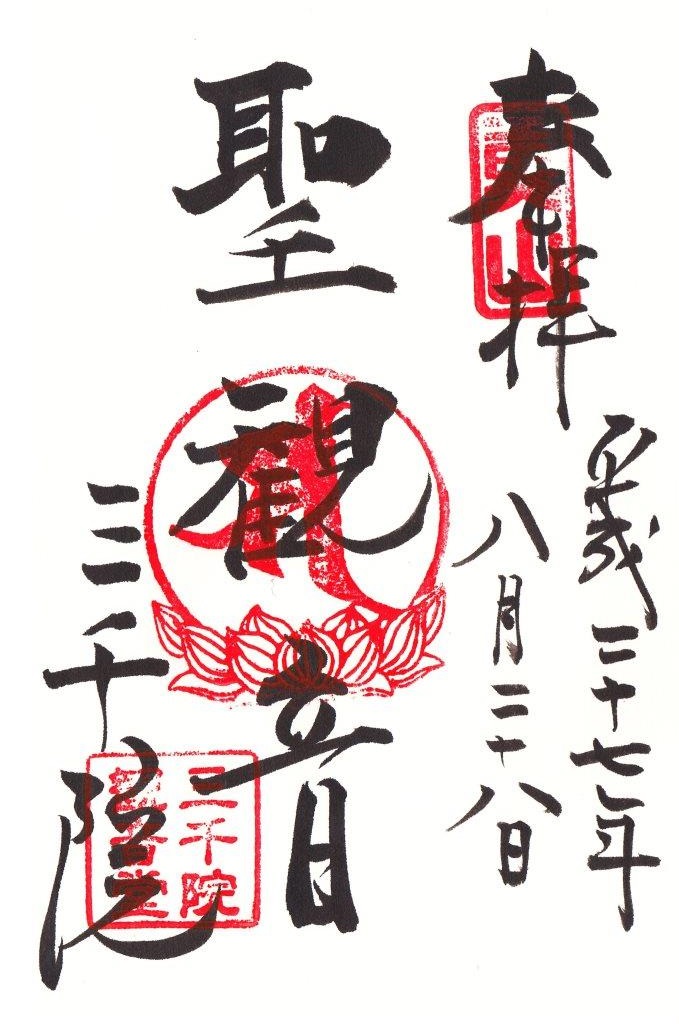 奉拝
平成二十七年
八月二十八日
聖観音
三千院
三千院